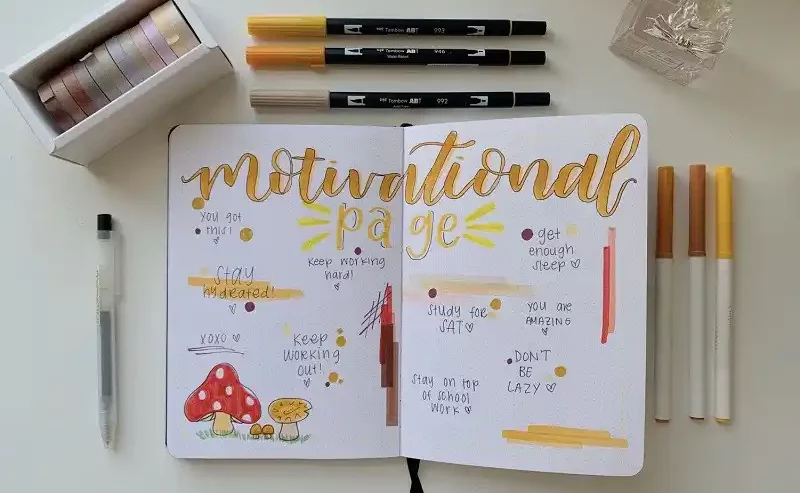 Tombow ABT 993
Tombow ABT
Tombow ABT 992
motivational
page
you got
this!
keep working
hard!
stay
hydrated!
xoxo
keep
working
out!
get
enough
sleep
study for
SAT
you are
AMAZING
DON'T
BE
LAZY
stay on top
of school
work